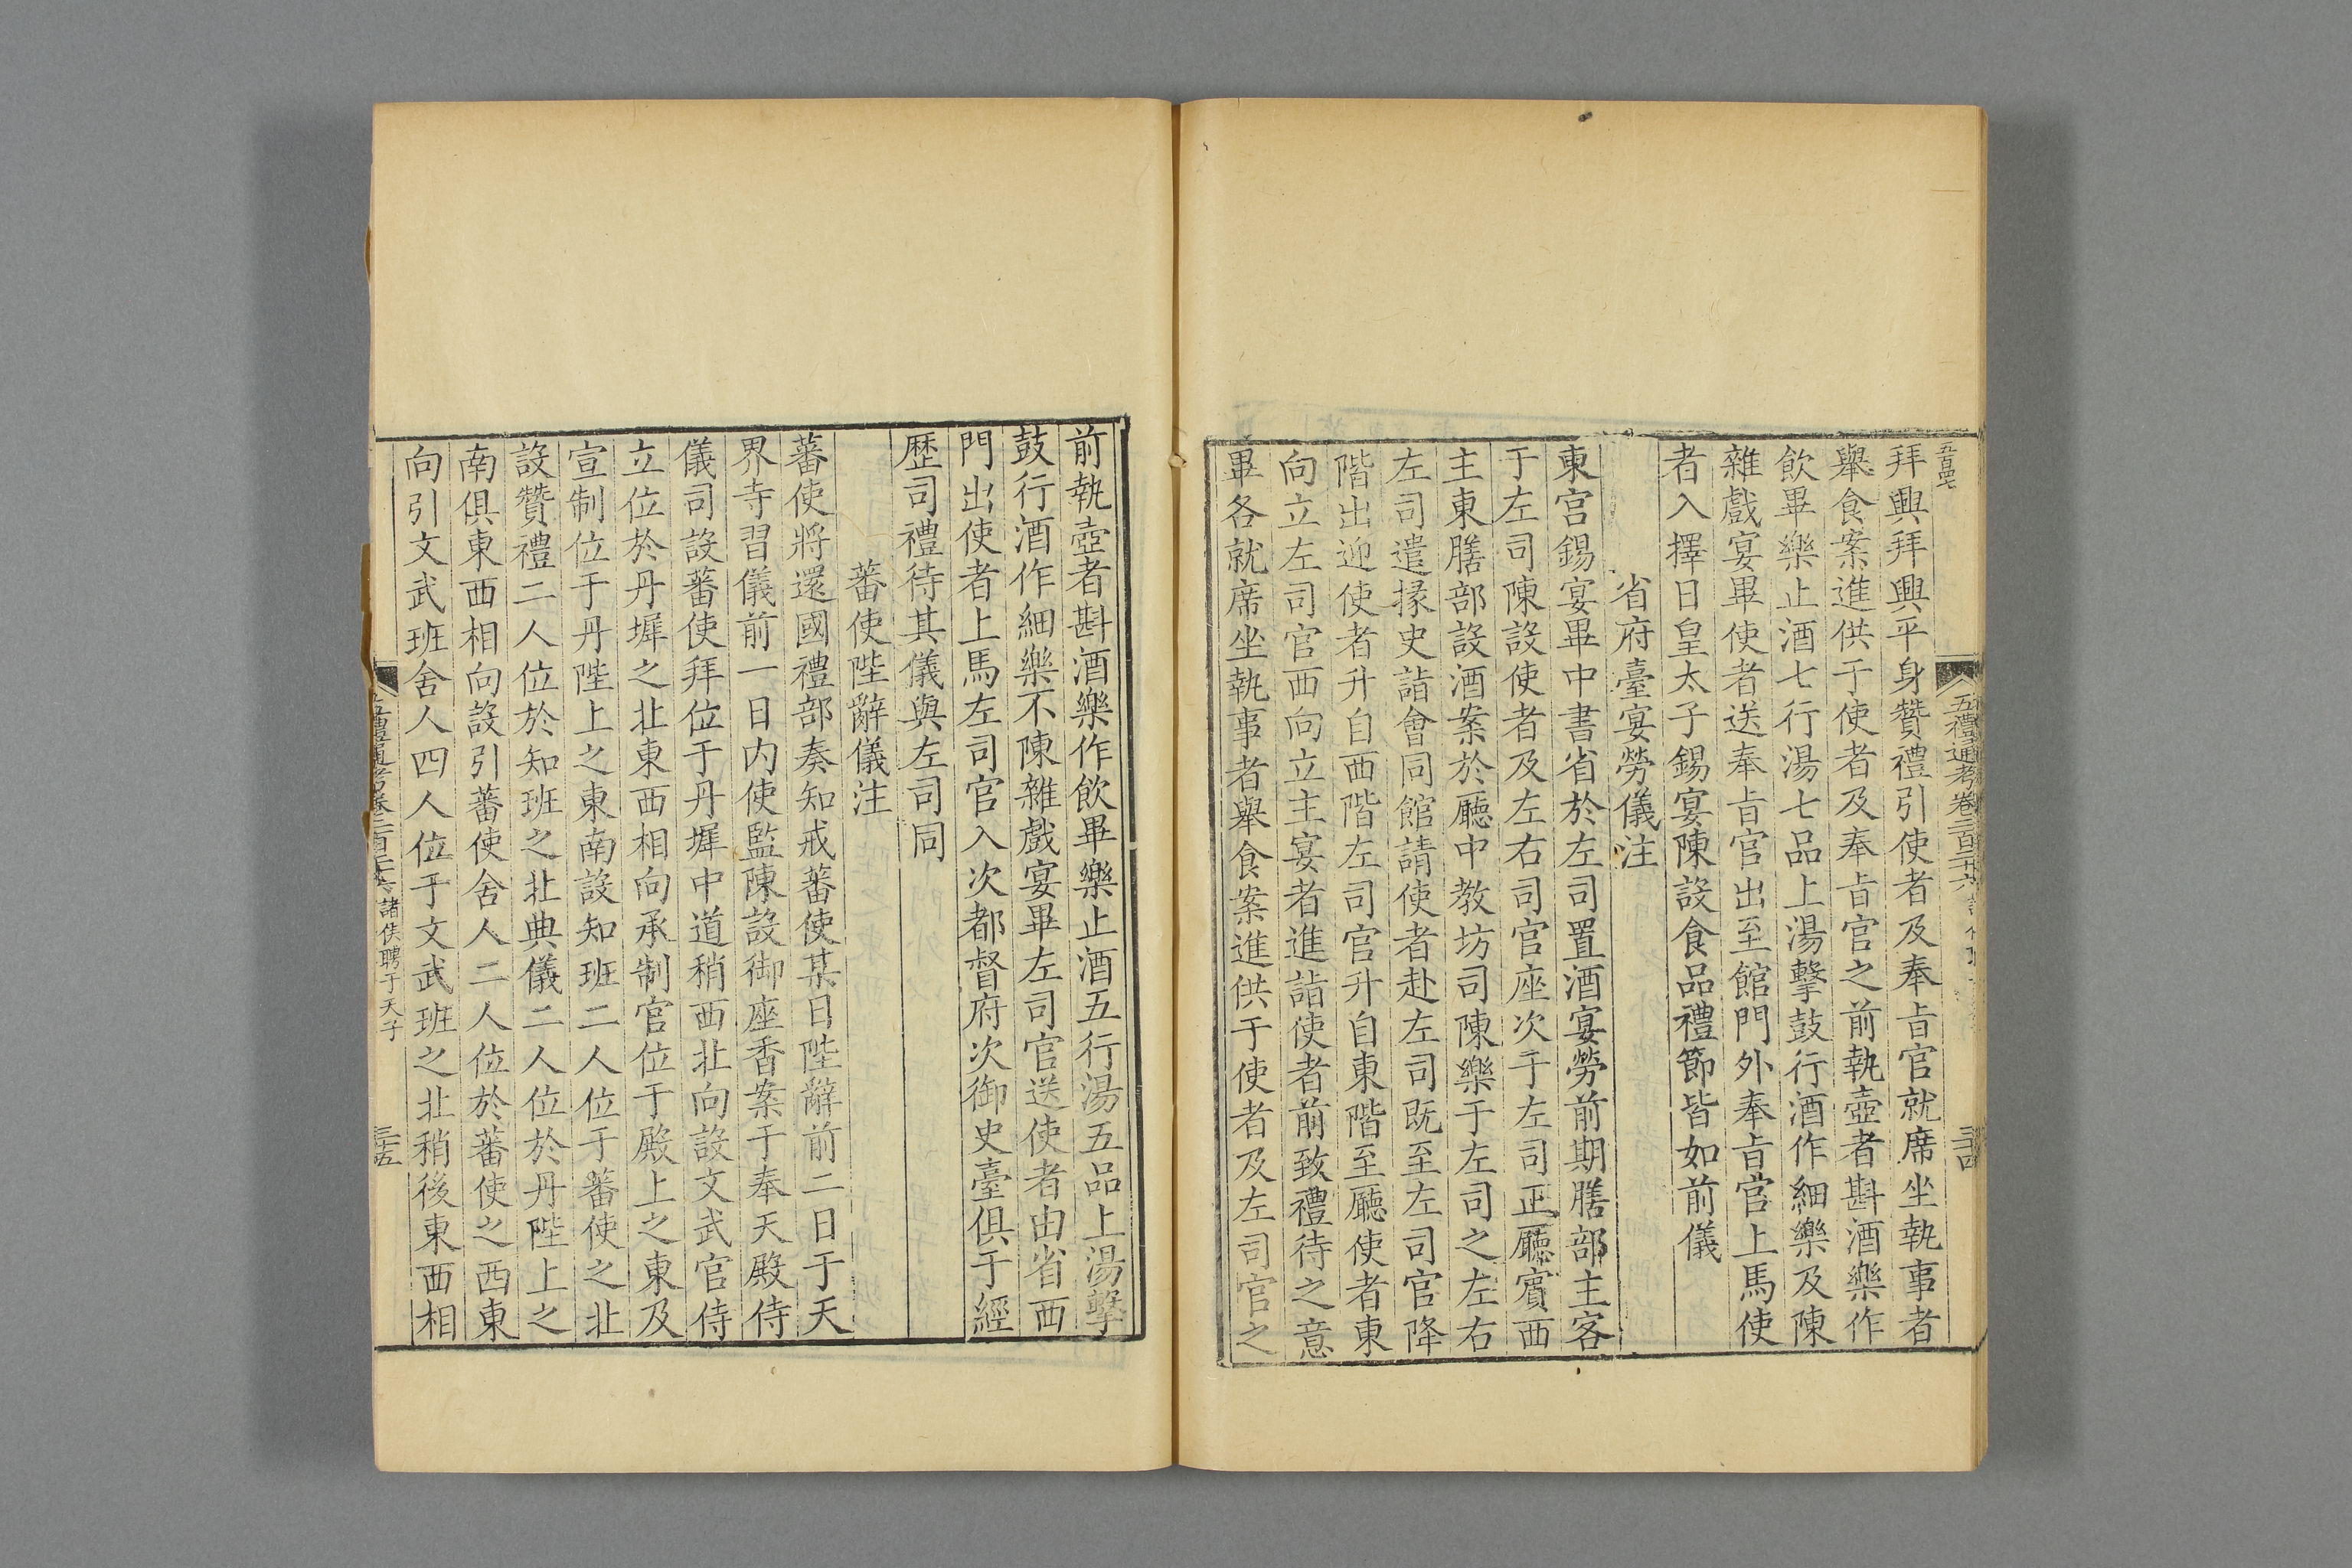 五百四七
五禮通考卷二百二十六
三四
拜興拜興平身贊禮引使者及奉㫖官就席坐執事者
舉食案進供于使者及奉㫖官之前執壺者斟酒樂作
飲畢樂止酒七行湯七品上湯擊鼓行酒作細樂及陳
雜戲宴畢使者送奉㫖官出至館門外奉㫖官上馬使
者入擇日皇太子錫宴陳設食品禮節皆如前儀
省府臺宴勞儀注
東宮錫宴畢中書省於左司置酒宴勞前期膳部主客
于左司陳設使者及左右司官座次于左司正廳賓西
主東膳部設酒案於廳中教坊司陳樂于左司之左右
左司遣掾史詣會同館請使者赴左司既至左司官降
階出迎使者升自西階左司官升自東階至廳使者東
向立左司官西向立主宴者進詣使者前致禮待之意
畢各就席坐執事者舉食案進供于使者及左司官之
前執壺者斟酒樂作飲畢樂止酒五行湯五品上湯擊
鼓行酒作細樂不陳雜戲宴畢左司官送使者由省西
門出使者上馬左司官入次都督府次御史臺俱于經
歷司禮待其儀與左司同
蕃使陛辭儀注
蕃使將還國禮部奏知戒蕃使某日陛辭前二日于天
界寺習儀前一日内使監陳設御座香案于奉天殿侍
儀司設蕃使拜位于丹墀中道稍西北向設文武官侍
立位於丹墀之北東西相向承制官位于殿上之東及
宣制位于丹陛上之東南設知班二人位于蕃使之北
設贊禮二人位於知班之北典儀二人位於丹陛上之
南俱東西相向設引蕃使舍人二人位於蕃使之西東
向引文武班舍人四人位于文武班之北稍後東西相
五禮通考卷二百二十六 諸侯聘于天子
三五